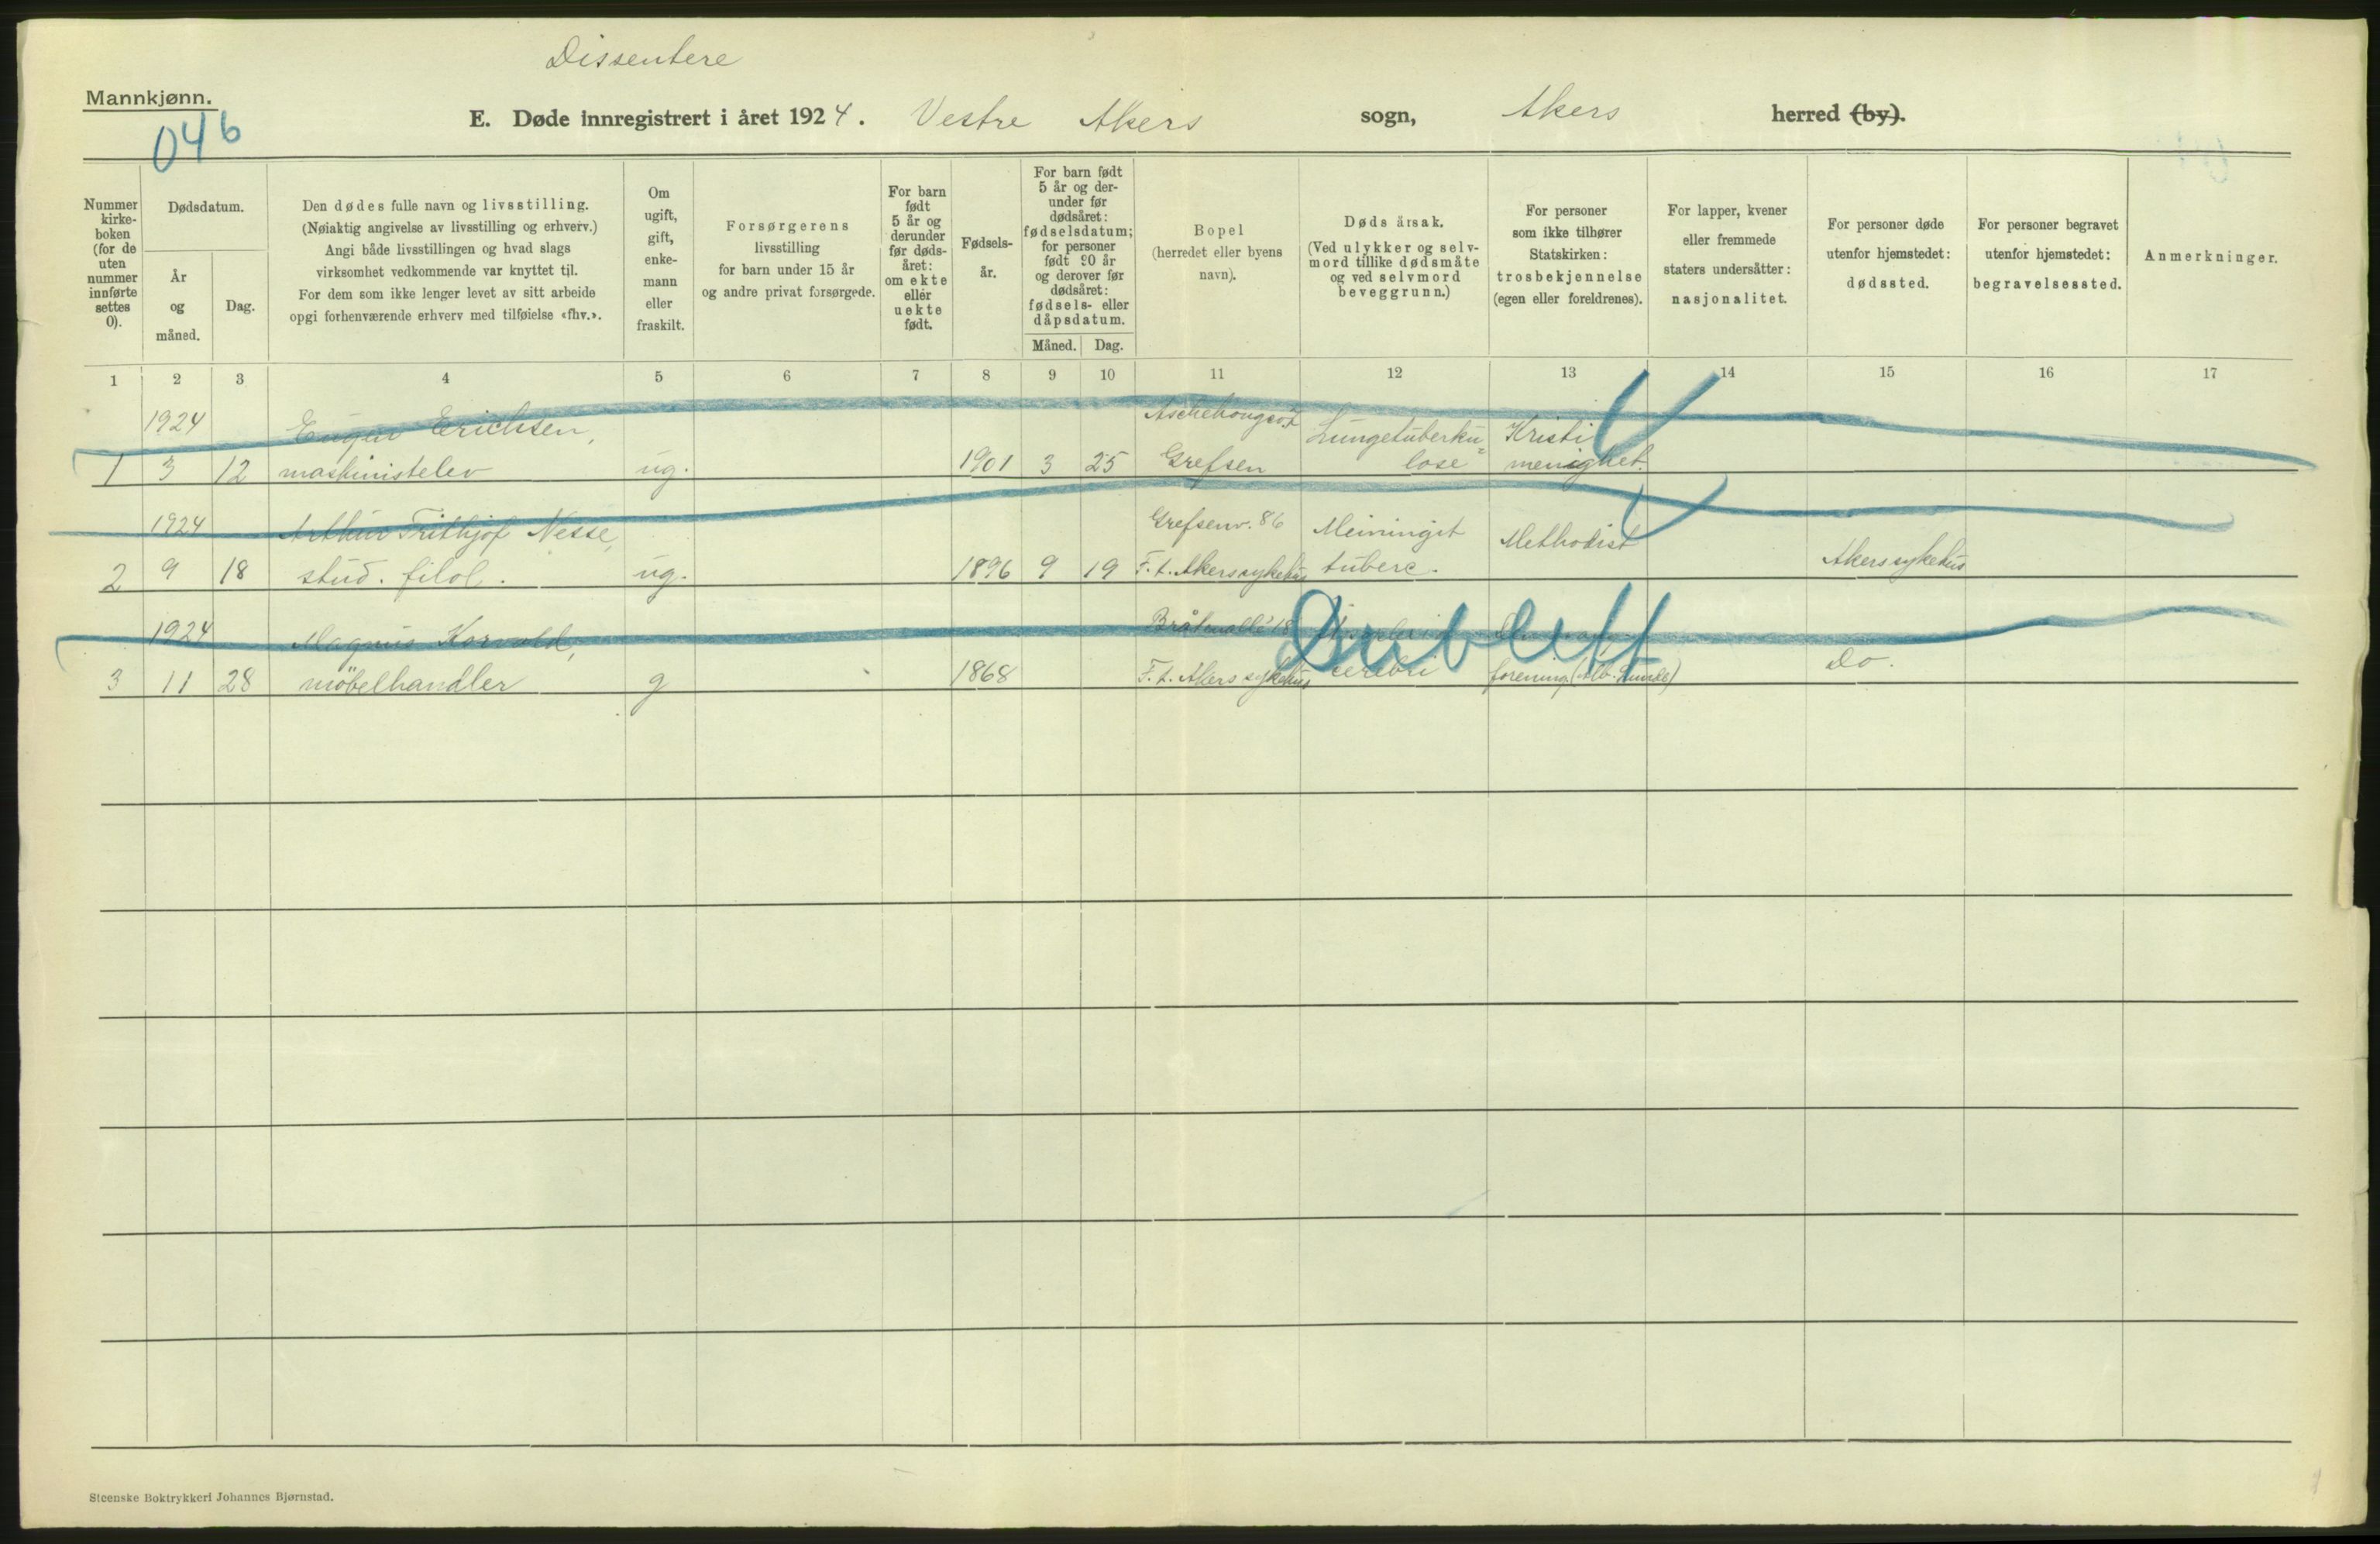 Dissentere
Mannkjønn.
046
E. Døde innregistrert i året 1924. Vestre Akers sogn, Akers herred (by).
Nummer
kirke-
boken
(for de
uten
nummer
innførte
settes
0).
Dødsdatum.
År
og
måned.
Dag.
Den dødes fulle navn og livsstilling.
(Nøiaktig angivelse av livsstilling og erhverv.)
Angi både livsstillingen og hvad slags
virksomhet vedkommende var knyttet til.
For dem som ikke lenger levet av sitt arbeide
opgi forhenværende erhverv med tilføielse «fhv.».
Om
ugift,
gift,
enke-
mann
eller
fraskilt.
Forsørgerens
livsstilling
for barn under 15 år
og andre privat forsørgede.
For barn
født
5 år og
derunder
før døds-
året:
om ekte
eller
uekte
født.
Fødsels-
år.
For barn født
5 år og der-
under før
dødsåret:
fødselsdatum;
for personer
født 90 år
og derover før
dødsåret:
fødsels- eller
dåpsdatum.
Måned. Dag.
Bopel
(herredet eller byens
navn).
Dødsårsak.
(Ved ulykker og selv-
mord tillike dødsmåte
og ved selvmord
beveggrunn.)
For personer
som ikke tilhører
Statskirken:
trosbekjennelse
(egen eller foreldrenes).
For lapper, kvener
eller fremmede
staters undersåtter:
nasjonalitet.
For personer døde
utenfor hjemstedet:
dødssted.
For personer begravet
utenfor hjemstedet:
begravelsessted.
Anmerkninger.
1 2 3 4 5 6 7 8 9 10 11 12 13 14 15 16 17
1924 Erichsen, Lungetuberku= Kristi
1 3 12 maskinistelev ug. 1901 3 25 Grefsen lose menighet.
1924 Arthur Frithjof Nesse, Grefsenv. 86 Meiningit Methodist
2 9 18 stud. filol. ug. 1896 9 19 F.t. Akers sykehus tuberc. Akers sykehus
1924 Magnus Korvald, 18
3 11 28 möbelhandler g 1868 F.t. Akers sykehus cerebri forening Do.
Dublett
Steenske Boktrykkeri Johannes Bjørnstad.